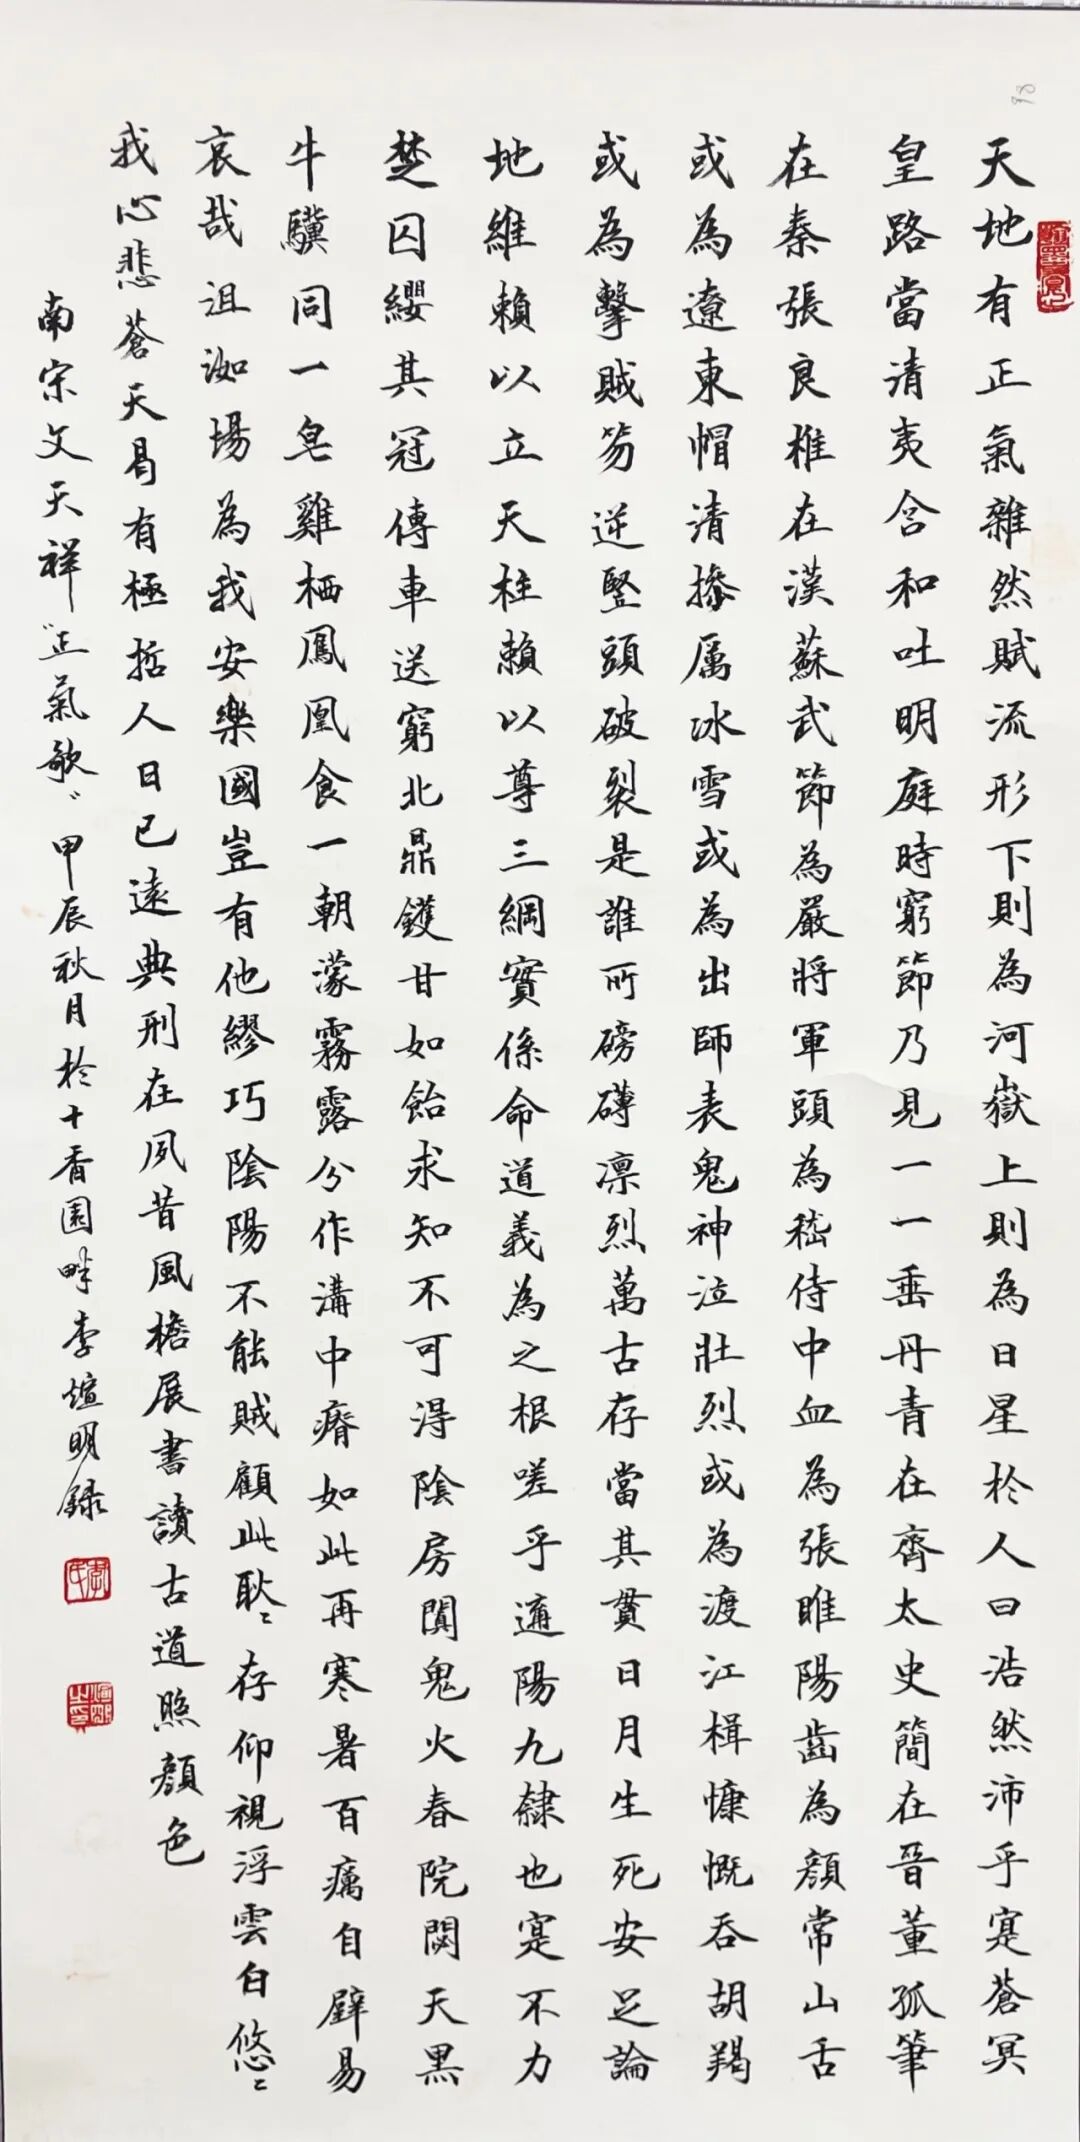 天地有正氣雜然賦流形下則為河嶽上則為日星於人曰浩然沛乎寔蒼冥
皇路當清夷含和吐明庭時窮節乃見一一垂丹青在齊太史簡在晉董孤筆
在秦張良椎在漢蘇武節為嚴將軍頭為嵇侍中血為張睢陽齒為顏常山舌
或為遼東帽清摻厲冰雪或為出師表鬼神泣壯烈或為渡江楫慷慨吞胡羯
或為擊賊笏逆豎頭破裂是誰所磅礴凛烈萬古存當其貫日月生死安足論
地維賴以立天柱賴以尊三綱實係命道義為之根嗟乎遘陽九隸也寔不力
楚囚纓其冠傳車送窮北鼎鑊甘如飴求知不可得陰房闃鬼火春院閟天黑
牛驥同一皂雞栖鳳凰食一朝濛霧露分作溝中瘠如此再寒暑百癘自辟易
哀哉沮洳場為我安樂國豈有他繆巧陰陽不能賊顧此耿〻存仰視浮雲白悠〻
我心悲蒼天曷有極哲人日已遠典刑在夙昔風檐展書讀古道照顏色
南宋文天祥"正氣歌"甲辰秋月於十香園畔李煊明録